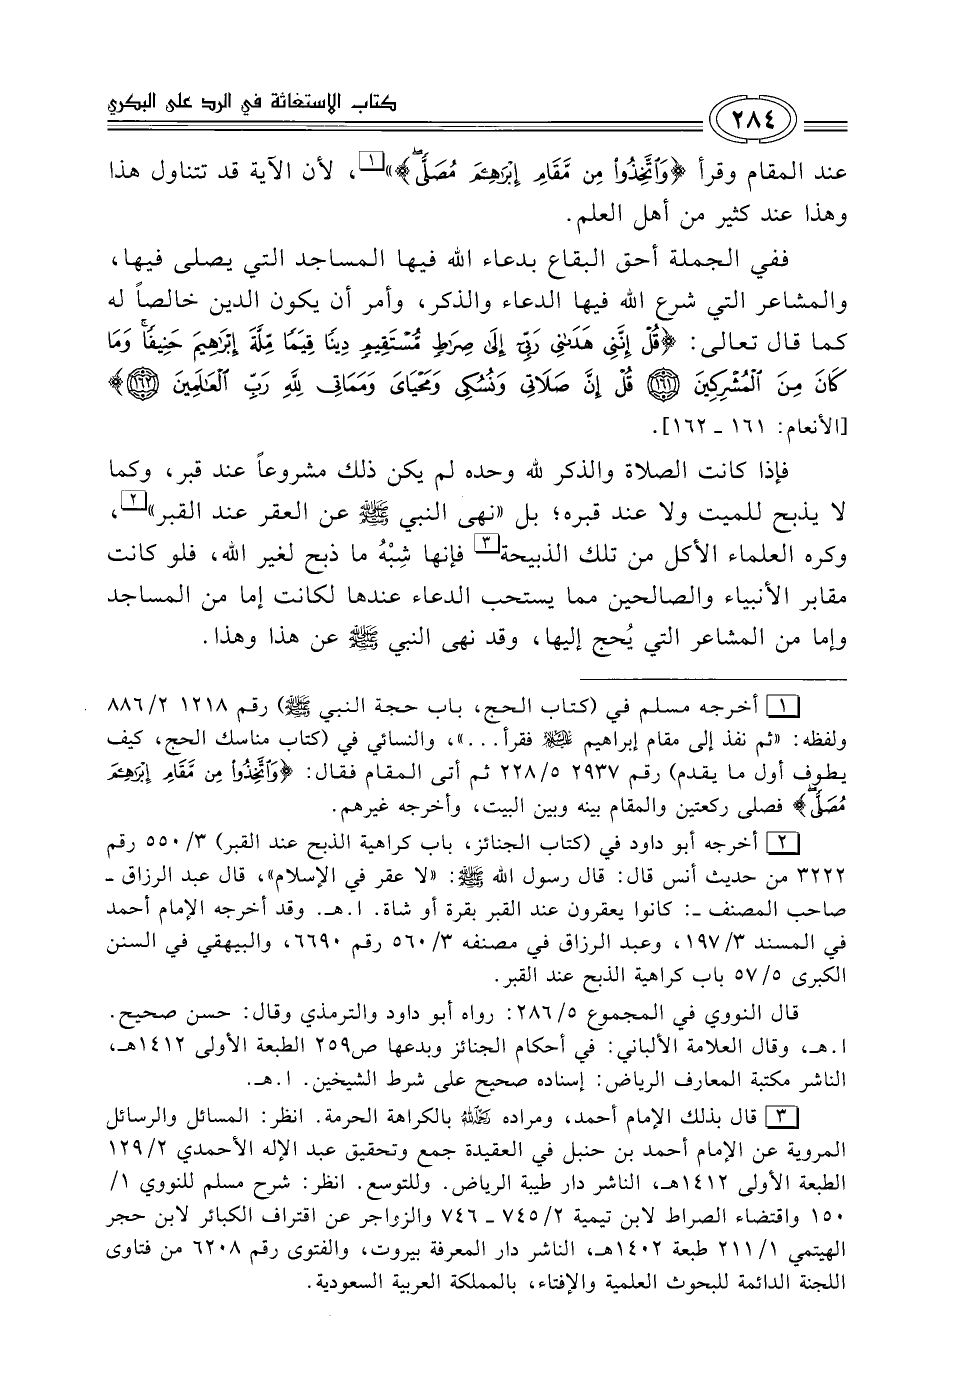 كتاب الاستغاثة في الرد على البكري
٢٨٤
عند المقام وقرأ ﴿وَٱتَّخِذُوا۟ مِن مَّقَامِ إِبْرَٰهِـۧمَ مُصَلًّى﴾»[١]، لأن الآية قد تتناول هذا
وهذا عند كثير من أهل العلم.
ففي الجملة أحق البقاع بدعاء الله فيها المساجد التي يصلى فيها،
والمشاعر التي شرع الله فيها الدعاء والذكر، وأمر أن يكون الدين خالصاً له
كما قال تعالى: ﴿قُلْ إِنَّنِى هَدَىٰنِى رَبِّىٓ إِلَىٰ صِرَٰطٍ مُّسْتَقِيمٍ دِينًا قِيَمًا مِّلَّةَ إِبْرَٰهِيمَ حَنِيفًا ۚ وَمَا
كَانَ مِنَ ٱلْمُشْرِكِينَ ۝١٦١ قُلْ إِنَّ صَلَاتِى وَنُسُكِى وَمَحْيَاىَ وَمَمَاتِى لِلَّهِ رَبِّ ٱلْعَٰلَمِينَ ۝١٦٢﴾
[الأنعام: ١٦١ ـ ١٦٢].
فإذا كانت الصلاة والذكر لله وحده لم يكن ذلك مشروعاً عند قبر، وكما
لا يذبح للميت ولا عند قبره؛ بل «نهى النبي ﷺ عن العقر عند القبر»[٢]،
وكره العلماء الأكل من تلك الذبيحة[٣] فإنها شِبْهُ ما ذبح لغير الله، فلو كانت
مقابر الأنبياء والصالحين مما يستحب الدعاء عندها لكانت إما من المساجد
وإما من المشاعر التي يُحج إليها، وقد نهى النبي ﷺ عن هذا وهذا.
[١] أخرجه مسلم في (كتاب الحج، باب حجة النبي ﷺ) رقم ١٢١٨ ٢/ ٨٨٦
ولفظه: «ثم نفذ إلى مقام إبراهيم عليه السلام فقرأ...»، والنسائي في (كتاب مناسك الحج، كيف
يطوف أول ما يقدم) رقم ٢٩٣٧ ٥/ ٢٢٨ ثم أتى المقام فقال: ﴿وَٱتَّخِذُوا۟ مِن مَّقَامِ إِبْرَٰهِـۧمَ
مُصَلًّى﴾ فصلى ركعتين والمقام بينه وبين البيت، وأخرجه غيرهم.
[٢] أخرجه أبو داود في (كتاب الجنائز، باب كراهية الذبح عند القبر) ٣/ ٥٥٠ رقم
٣٢٢٢ من حديث أنس قال: قال رسول الله ﷺ: «لا عقر في الإسلام»، قال عبد الرزاق ـ
صاحب المصنف ـ: كانوا يعقرون عند القبر بقرة أو شاة. ا.هـ. وقد أخرجه الإمام أحمد
في المسند ٣/ ١٩٧، وعبد الرزاق في مصنفه ٣/ ٥٦٠ رقم ٦٦٩٠، والبيهقي في السنن
الكبرى ٥/ ٥٧ باب كراهية الذبح عند القبر.
قال النووي في المجموع ٥/ ٢٨٦: رواه أبو داود والترمذي وقال: حسن صحيح.
ا.هـ، وقال العلامة الألباني: في أحكام الجنائز وبدعها ص٢٥٩ الطبعة الأولى ١٤١٢هـ،
الناشر مكتبة المعارف الرياض: إسناده صحيح على شرط الشيخين. ا.هـ.
[٣] قال بذلك الإمام أحمد، ومراده رحمه الله بالكراهة الحرمة. انظر: المسائل والرسائل
المروية عن الإمام أحمد بن حنبل في العقيدة جمع وتحقيق عبد الإله الأحمدي ٢/ ١٢٩
الطبعة الأولى ١٤١٢هـ، الناشر دار طيبة الرياض. وللتوسع. انظر: شرح مسلم للنووي ١/
١٥٠ واقتضاء الصراط لابن تيمية ٢/ ٧٤٥ ـ ٧٤٦ والزواجر عن اقتراف الكبائر لابن حجر
الهيتمي ١/ ٢١١ طبعة ١٤٠٢هـ، الناشر دار المعرفة بيروت، والفتوى رقم ٦٢٠٨ من فتاوى
اللجنة الدائمة للبحوث العلمية والإفتاء، بالمملكة العربية السعودية.